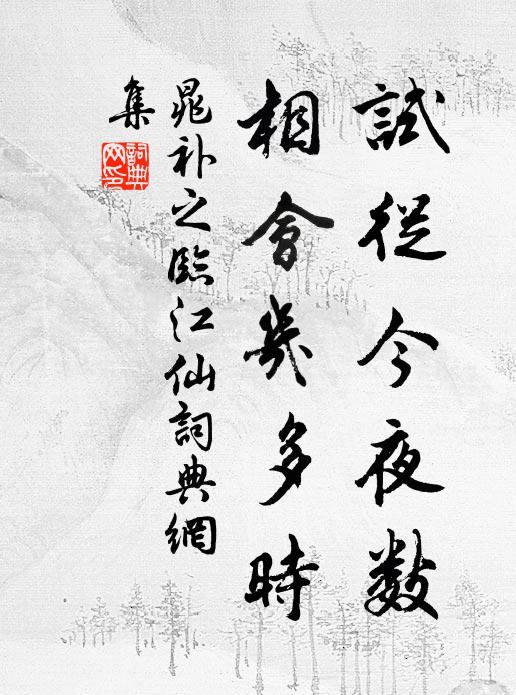 試從今夜數
相會幾多時
晁补之臨江仙詞典網
集
詞典網印